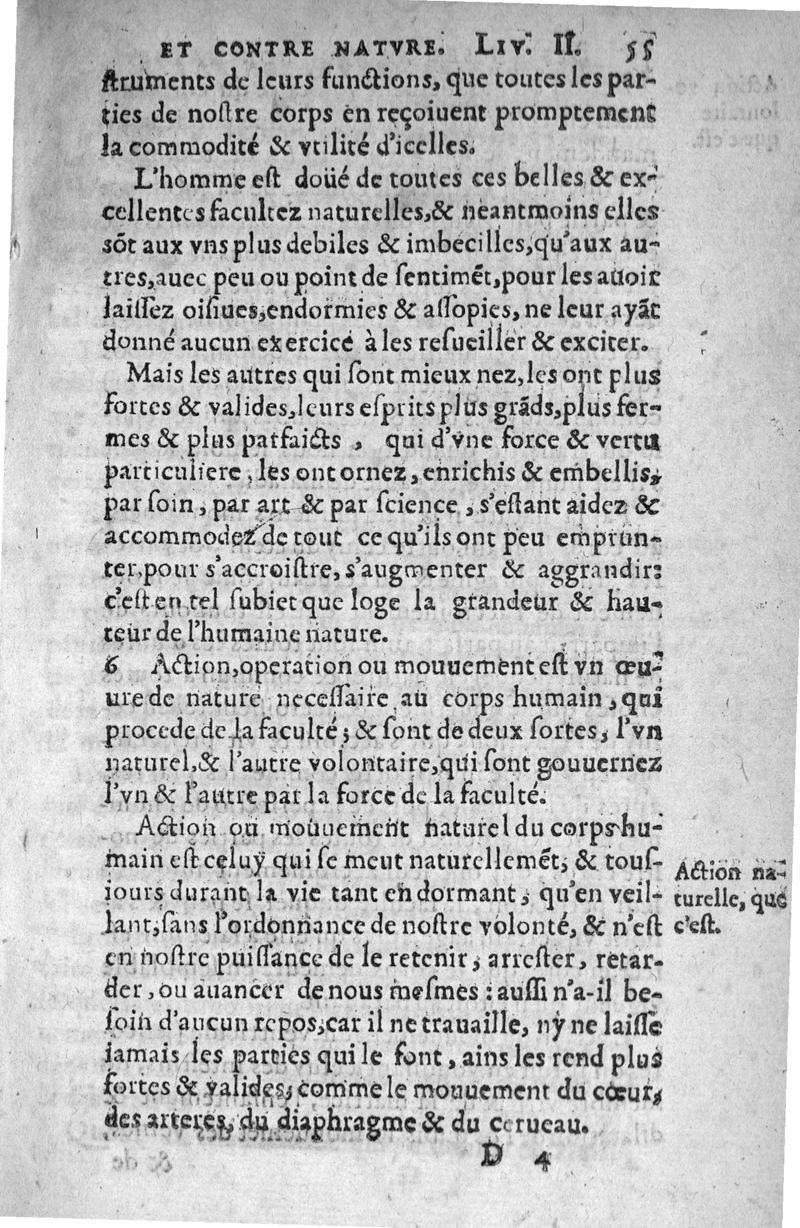 ET CONTRE NATVRE. LIV. II. 55
ſtruments de leurs functions, que toutes les par-
ties de noſtre corps en reçoiuent promptement
la commodité & vtilité d'icelles.
L'homme eſt doüé de toutes ces belles & ex-
cellentes facultez naturelles, & neantmoins elles
sõt aux vns plus debiles & imbecilles, qu'aux au-
tres, auec peu ou point de ſentimẽt, pour les auoir
laiſſez oiſiues, endormies & aſſopies, ne leur ayãt
donné aucun exercice à les reſueiller & exciter.
Mais les autres qui ſont mieux nez, les ont plus
fortes & valides, leurs eſprits plus grãds, plus fer-
mes & plus parfaicts, qui d'vne force & vertu
particuliere, les ont ornez, enrichis & embellis,
par ſoin, par art & par ſcience, s'eſtant aidez &
accommodez de tout ce qu'ils ont peu emprun-
ter, pour s'accroiſtre, s'augmenter & aggrandir:
c'eſt en tel ſubiet que loge la grandeur & hau-
teur de l'humaine nature.
6 Action, operation ou mouuement eſt vn œu-
ure de nature neceſſaire au corps humain, qui
procede de la faculté; & ſont de deux ſortes, l'vn
naturel, & l'autre volontaire, qui ſont gouuernez
l'vn & l'autre par la force de la faculté.
Action ou mouuement naturel du corps hu-
main eſt celuy qui ſe meut naturellemẽt, & touſ-
iours durant la vie tant en dormant, qu'en veil-
lant, ſans l'ordonnance de noſtre volonté, & n'eſt
en noſtre puiſſance de le retenir, arreſter, retar-
der, ou auancer de nous meſmes: auſſi n'a-il be-
ſoin d'aucun repos, car il ne trauaille, ny ne laiſſe
iamais les parties qui le font, ains les rend plus
fortes & valides, comme le mouuement du cœur,
des arteres, du diaphragme & du cerueau.
Action na-
turelle, que
c'eſt.
D 4